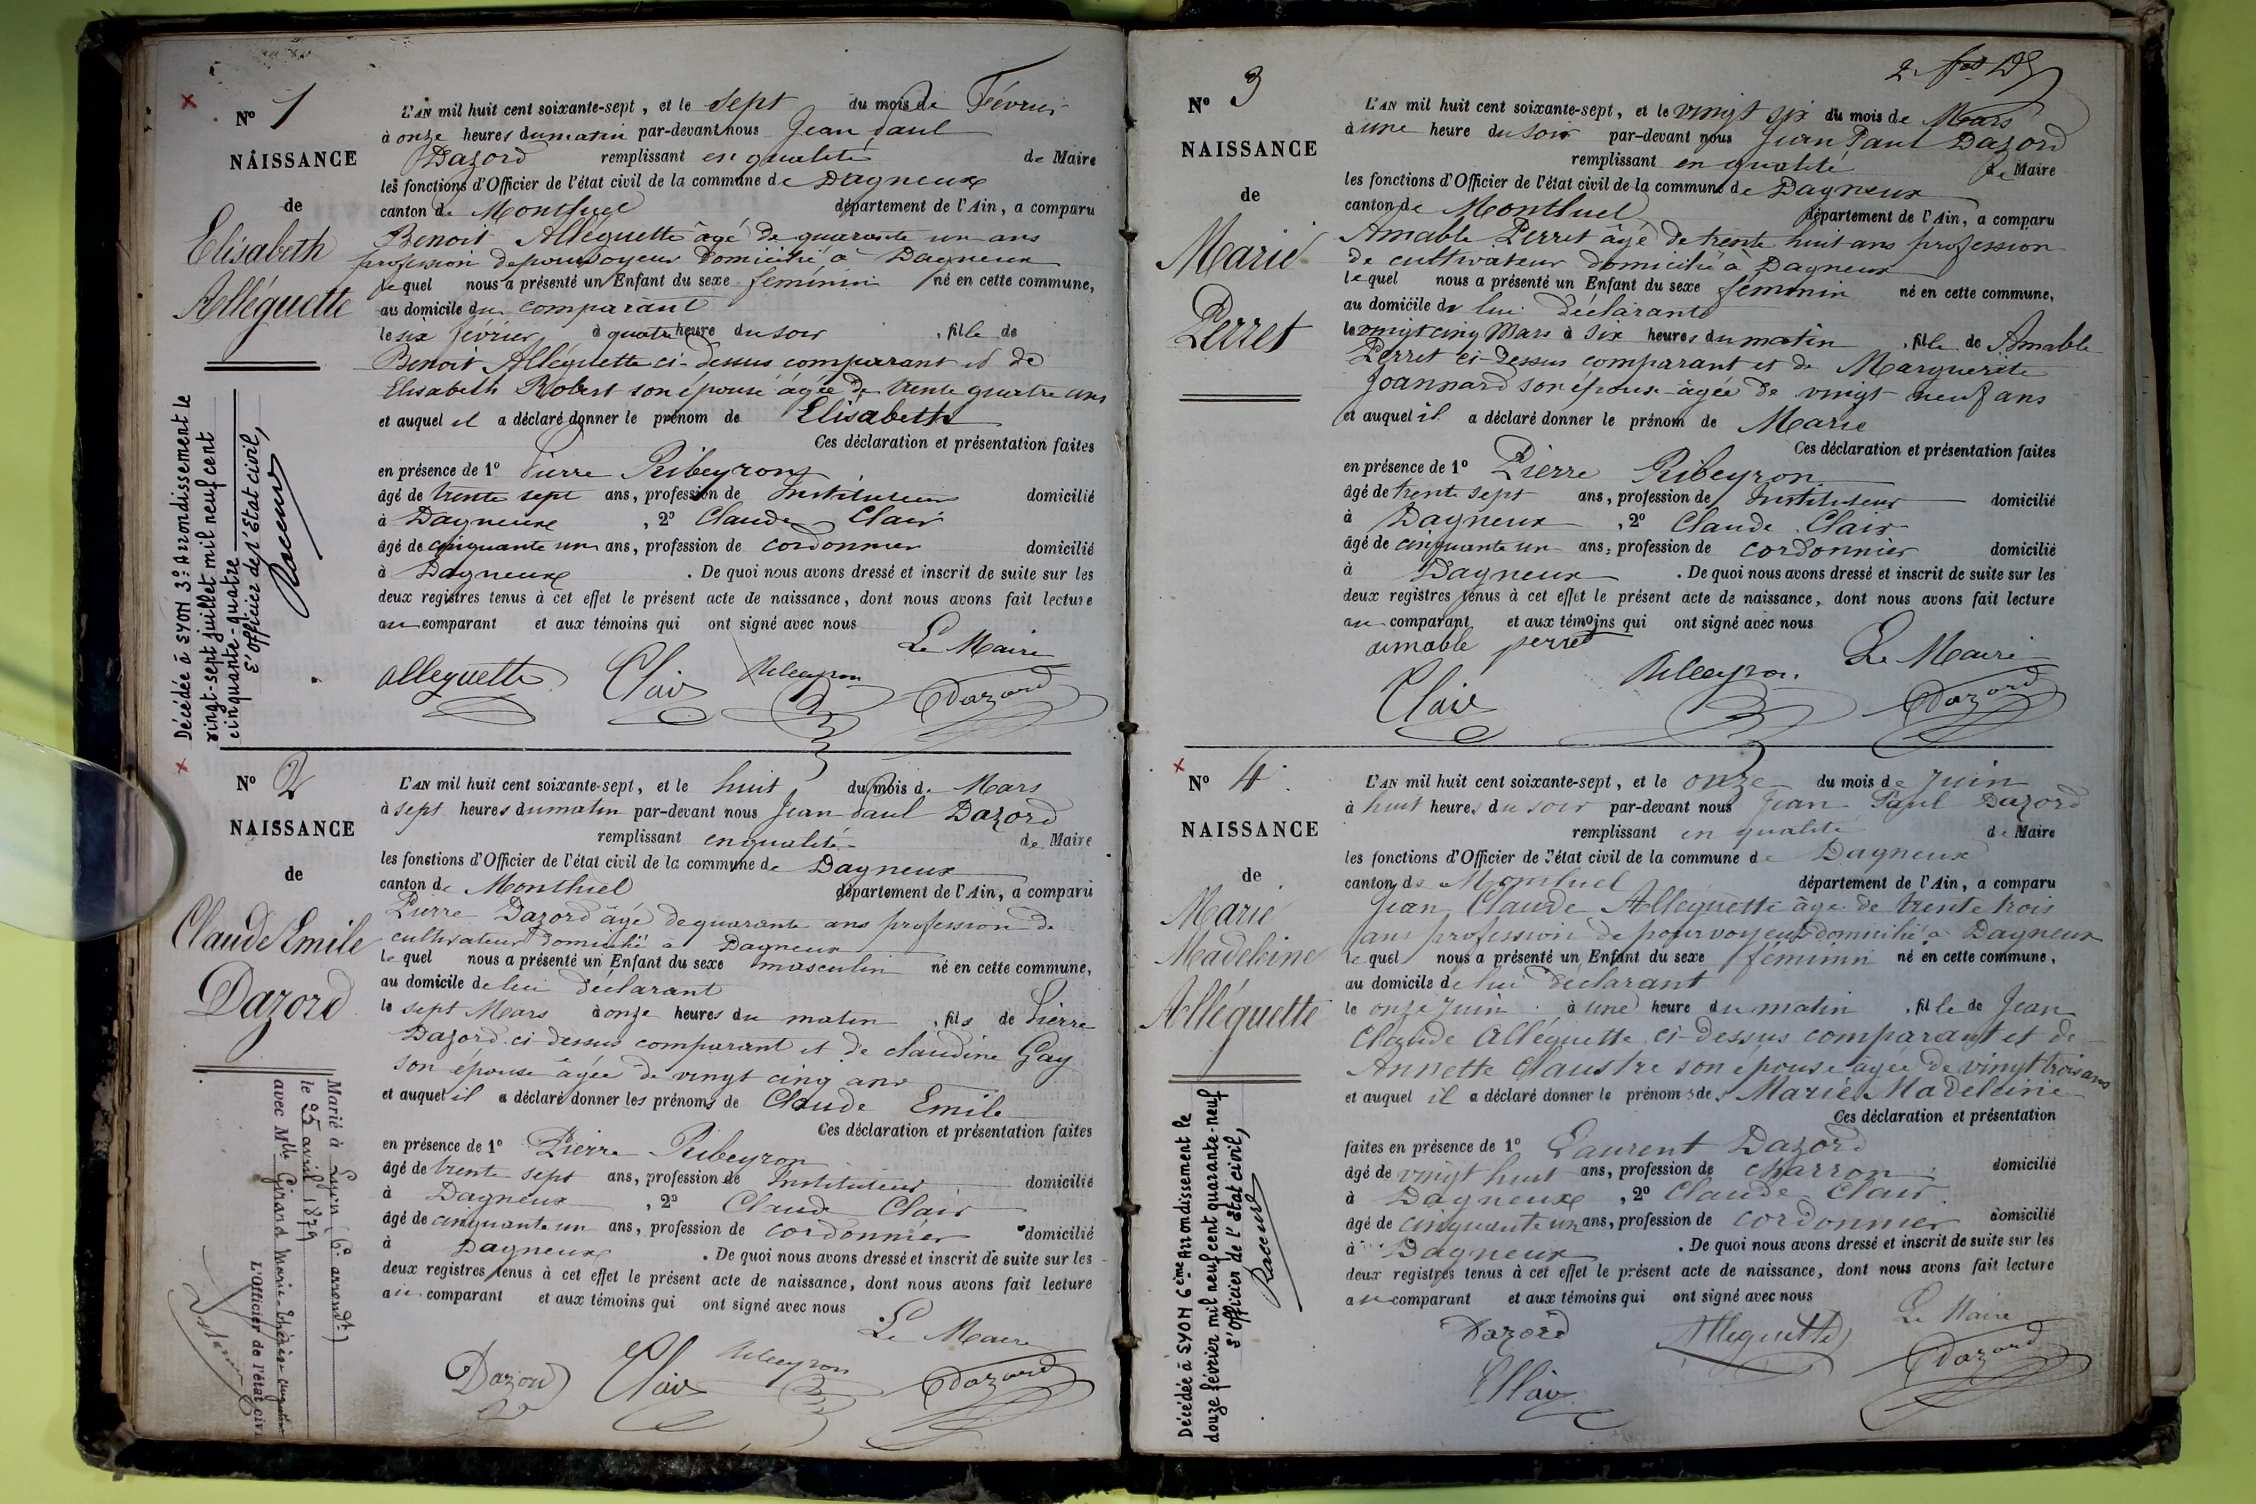 N° 1
NAISSANCE
de
Elisabeth
Alléguette
Décédée à LYON 3e Arrondissement le
vingt-sept juillet mil neuf cent
cinquante-quatre
L'Officier de l'Etat civil,
L'AN mil huit cent soixante-sept, et le sept du mois de Février
à onze heures du matin par-devant nous Jean Paul
Dazord remplissant en qualité de Maire
les fonctions d'Officier de l'état civil de la commune de Dagneux
canton de Montluel département de l'Ain, a comparu
Benoit Alléguette âgé de quarante un ans
profession de pourvoyeur domicilié à Dagneux
le quel nous a présenté un Enfant du sexe féminin né en cette commune,
au domicile du comparant
le six février à quatre heure du soir , fille de
Benoit Alléguette ci-dessus comparant et de
Elisabeth Robert son épouse âgée de trente quatre ans
et auquel il a déclaré donner le prénom de Elisabeth
Ces déclaration et présentation faites
en présence de 1° Pierre Ribeyron
âgé de trente sept ans, profession de Instituteur domicilié
à Dagneux , 2° Claude Clair
âgé de cinquante un ans, profession de cordonnier domicilié
à Dagneux . De quoi nous avons dressé et inscrit de suite sur les
deux registres tenus à cet effet le présent acte de naissance, dont nous avons fait lecture
au comparant et aux témoins qui ont signé avec nous
Le Maire
alleguette Clair Ribeyron Dazord
N° 2
NAISSANCE
de
Claude Emile
Dazord
Marié à Lyon (6e arrondt)
le 25 avril 1879
avec Mlle Girand Marie-Thérèse
L'Officier de l'état civil
L'AN mil huit cent soixante-sept, et le huit du mois de Mars
à sept heures du matin par-devant nous Jean Paul Dazord
remplissant en qualité de Maire
les fonctions d'Officier de l'état civil de la commune de Dagneux
canton de Montluel département de l'Ain, a comparu
Pierre Dazord âgé de quarante ans profession de
cultivateur domicilié à Dagneux
le quel nous a présenté un Enfant du sexe masculin né en cette commune,
au domicile de lui déclarant
le sept Mars à onze heures du matin , fils de Pierre
Dazord ci-dessus comparant et de claudine Gay
son épouse âgée de vingt cinq ans
et auquel il a déclaré donner les prénoms de Claude Emile
Ces déclaration et présentation faites
en présence de 1° Pierre Ribeyron
âgé de trente sept ans, profession de Instituteur domicilié
à Dagneux , 2° Claude Clair
âgé de cinquante un ans, profession de cordonnier domicilié
à Dagneux . De quoi nous avons dressé et inscrit de suite sur les
deux registres tenus à cet effet le présent acte de naissance, dont nous avons fait lecture
au comparant et aux témoins qui ont signé avec nous
Le Maire
Dazord Clair Ribeyron Dazord
N° 3
NAISSANCE
de
Marie
Perret
L'AN mil huit cent soixante-sept, et le vingt six du mois de Mars
à une heure du soir par-devant nous Jean Paul Dazord
remplissant en qualité de Maire
les fonctions d'Officier de l'état civil de la commune de Dagneux
canton de Montluel département de l'Ain, a comparu
Amable Perret âgé de trente huit ans profession
de cultivateur domicilié à Dagneux
le quel nous a présenté un Enfant du sexe féminin né en cette commune,
au domicile de lui déclarant
le vingt cinq Mars à six heures du matin , fille de Amable
Perret ci-dessus comparant et de Marguerite
Joannard son épouse âgée de vingt neuf ans
et auquel il a déclaré donner le prénom de Marie
Ces déclaration et présentation faites
en présence de 1° Pierre Ribeyron
âgé de trente sept ans, profession de Instituteur domicilié
à Dagneux , 2° Claude Clair
âgé de cinquante un ans, profession de cordonnier domicilié
à Dagneux . De quoi nous avons dressé et inscrit de suite sur les
deux registres tenus à cet effet le présent acte de naissance, dont nous avons fait lecture
au comparant et aux témoins qui ont signé avec nous
aimable perret Le Maire
Clair Ribeyron Dazord
N° 4
NAISSANCE
de
Marie
Madeleine
Alléguette
Décédée à LYON 6ème Arrondissement le
douze février mil neuf cent quarante-neuf
L'Officier de l'Etat civil,
L'AN mil huit cent soixante-sept, et le onze du mois de juin
à huit heures du soir par-devant nous Jean Paul Dazord
remplissant en qualité de Maire
les fonctions d'Officier de l'état civil de la commune de Dagneux
canton de Montluel département de l'Ain, a comparu
Jean Claude Alléguette âgé de trente trois
ans profession de pourvoyeur domicilié à Dagneux
le quel nous a présenté un Enfant du sexe féminin né en cette commune,
au domicile de lui déclarant
le onze juin à une heure du matin , fille de Jean
Claude Alléguette ci-dessus comparant et de
Annette Claustre son épouse âgée de vingt trois ans
et auquel il a déclaré donner le prénoms de Marie Madeleine
Ces déclaration et présentation
faites en présence de 1° Laurent Dazord
âgé de vingt huit ans, profession de charron domicilié
à Dagneux , 2° Claude Clair
âgé de cinquante un ans, profession de cordonnier domicilié
à Dagneux . De quoi nous avons dressé et inscrit de suite sur les
deux registres tenus à cet effet le présent acte de naissance, dont nous avons fait lecture
au comparant et aux témoins qui ont signé avec nous
Le Maire
Dazord Alleguette Dazord
Clair